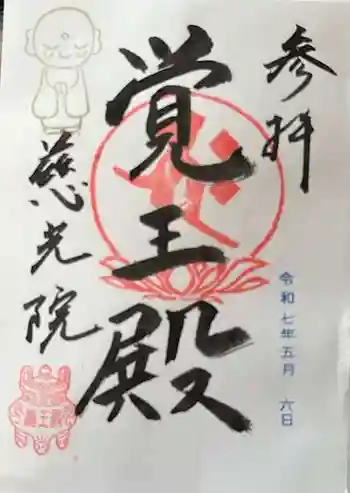 参拝
令和七年五月 六日
覚王殿
慈光院